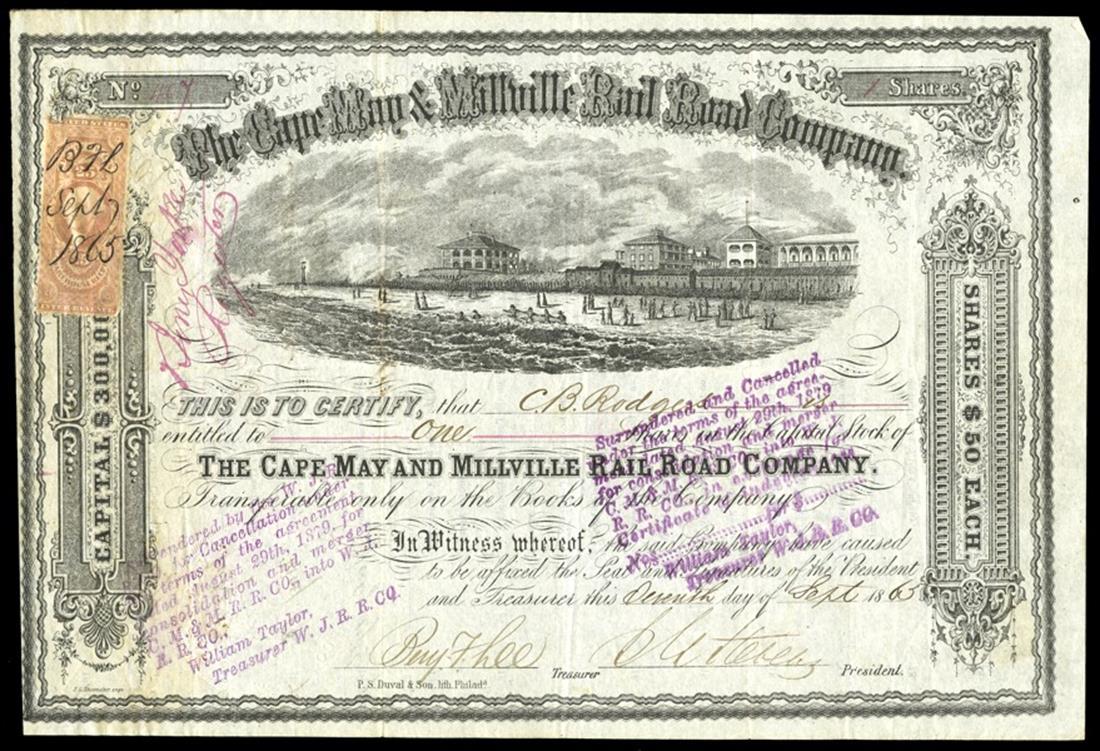 No
1 Shares.
The Cape May & Millville Rail Road Company.
B F L
Sept 7
1865
INTER. REVENUE
CAPITAL $ 300,00
SHARES $ 50 EACH.
THIS IS TO CERTIFY, that C. B. Rodgers is
entitled to One Shares in the Capital Stock of
THE CAPE MAY AND MILLVILLE RAIL ROAD COMPANY.
Transferable only on the Books of the Company.
In Witness whereof, the said Company have caused
to be affixed the Seal and Signatures of the President
and Treasurer this Seventh day of Sept 1865
Benj F Lee
Treasurer
President.
P. S. Duval & Son, lith. Philada.
Surrendered and Cancelled
under the terms of the agree-
ment dated August 29th, 1879
for consolidation and merger
C. M. & M. R. R. CO. into W. J.
R. R. CO., in exchange for
Certificate
Nos.
William Taylor,
Treasurer W. J. R. R. CO.
endered by W. J. R. R.
for Cancellation under
terms of the agreement
ted August 29th, 1879, for
consolidation and merger
C. M. & M. R. R. CO., into W. J.
R. R. CO.,
William Taylor,
Treasurer W. J. R. R. CO.